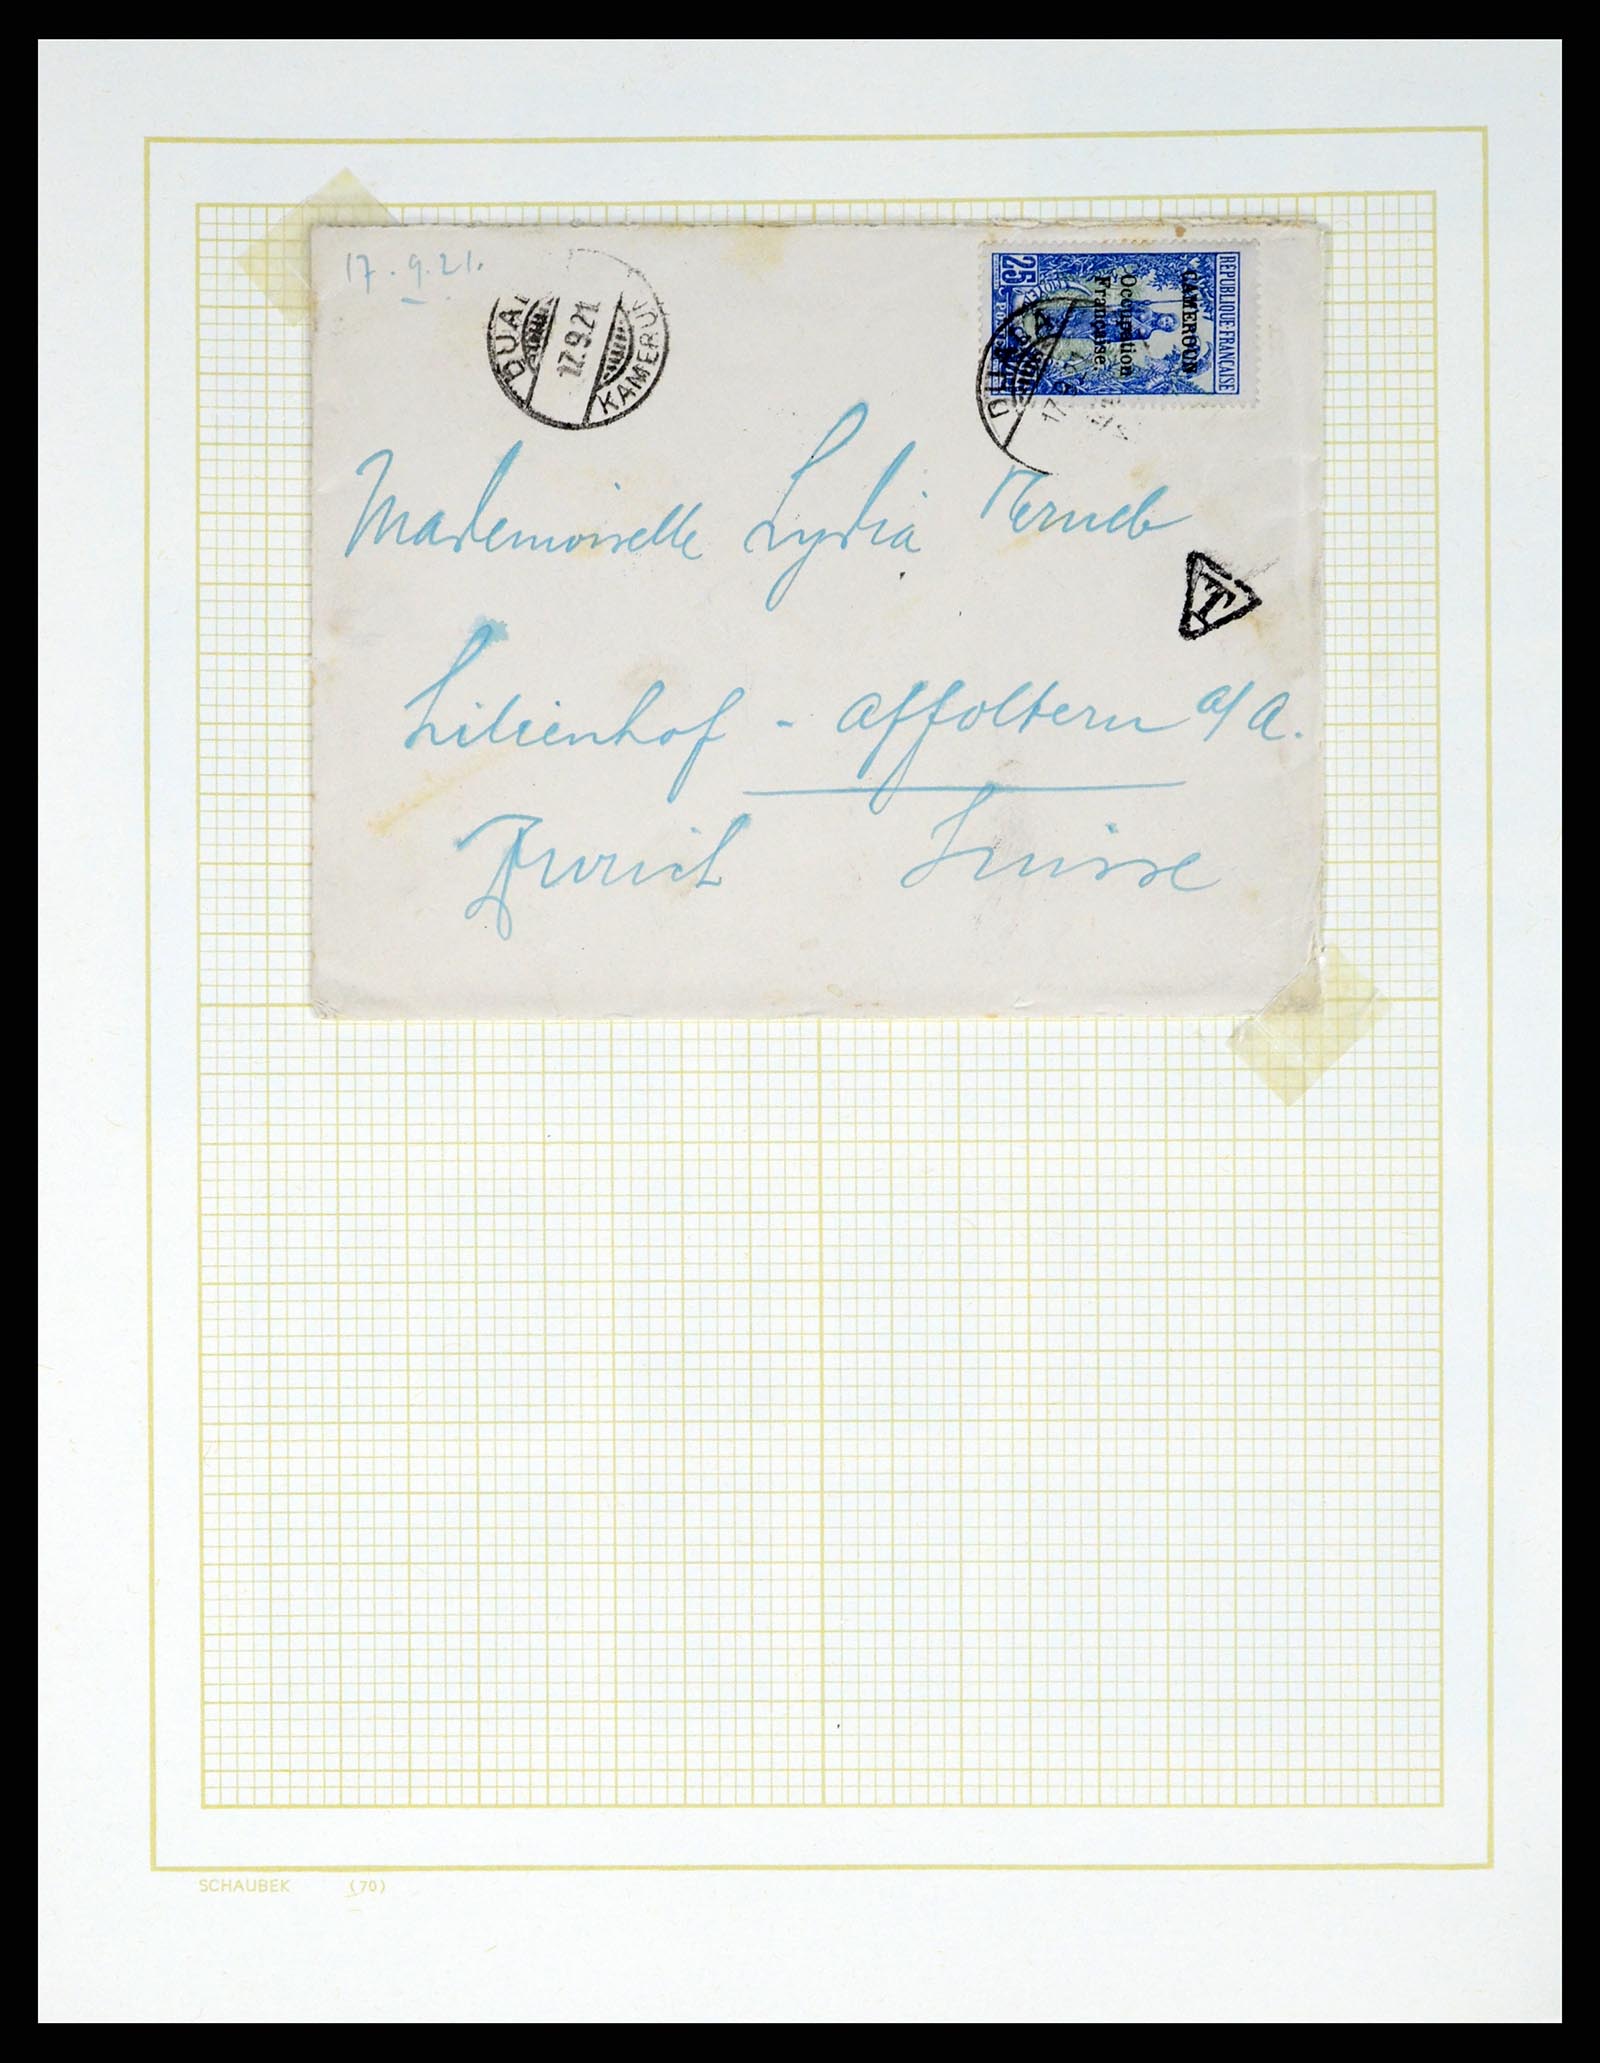 17.9.21.
DUALA
17.9.21
KAMERUN
RÉPUBLIQUE FRANÇAISE
CAMEROUN
Occupation
Française
25
DUALA
17.9.21
Mademoiselle Lydia
T
Lilienhof - Affoltern a/A.
Zurich Suisse
SCHAUBEK (70)